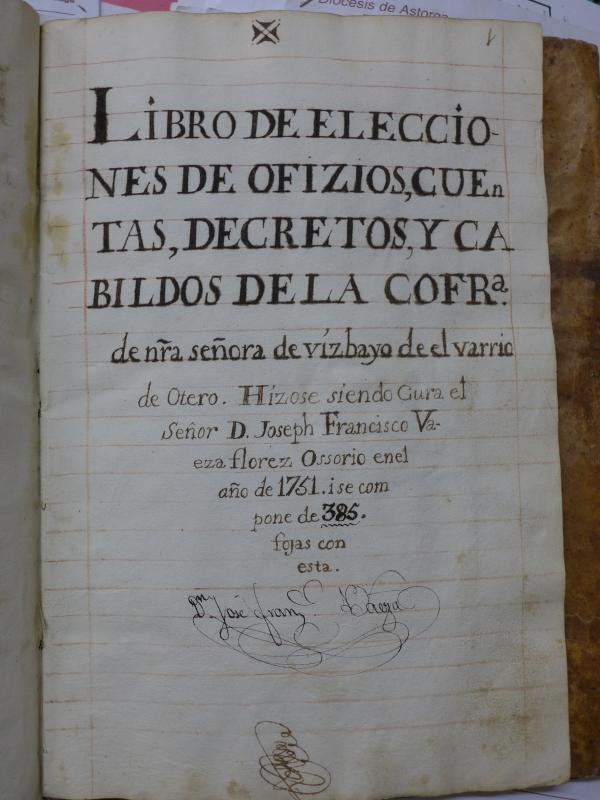 Diocesis de Astorga
1
LiBRO DE ELECCIO-
NES DE OFiZIOS, CUEn
TAS, DECRETOS, Y CA
BILDOS DE LA COFRª.
de nr̃a señora de vízbayo de el varrio
de Otero. Hízose siendo Cura el
Señor D. Joseph Francisco Va-
eza florez Ossorio enel
año de 1751. i se com
pone de 385.
fojas con
esta.
Dⁿ José Fran Baeza